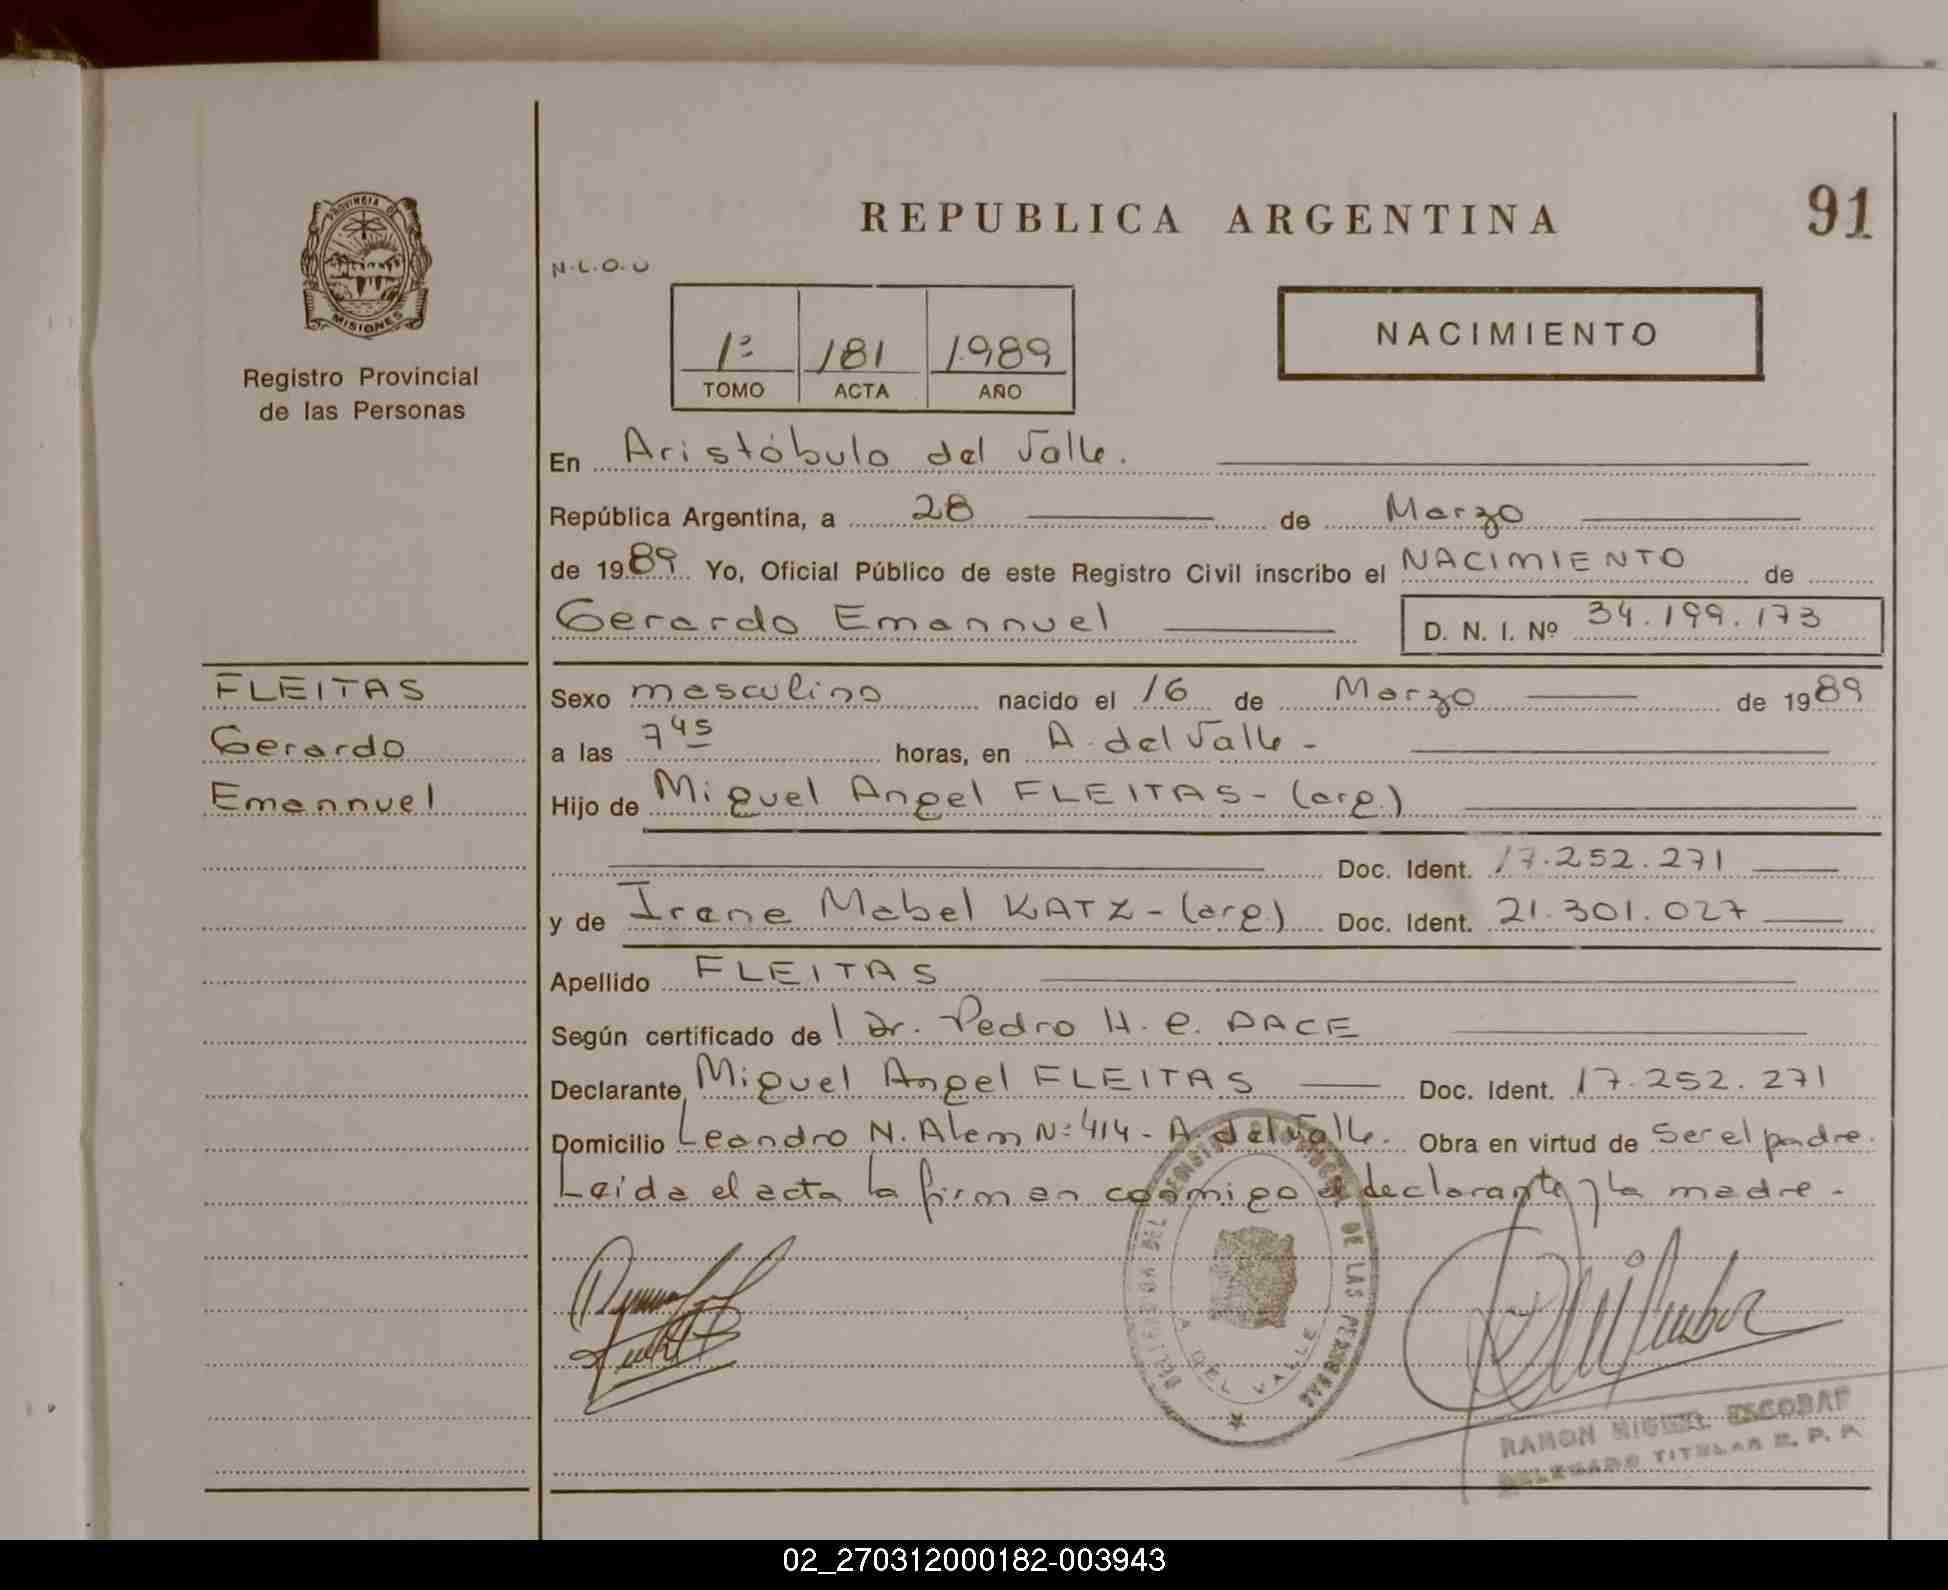 PROVINCIA DE
MISIONES
Registro Provincial
de las Personas
REPUBLICA ARGENTINA
91
N.L.O.U
1º 181 1989
TOMO ACTA AÑO
NACIMIENTO
En Aristóbulo del Valle.
República Argentina, a 28 de Marzo
de 1989 Yo, Oficial Público de este Registro Civil inscribo el NACIMIENTO de
Gerardo Emannuel D. N. I. Nº 34.199.173
FLEITAS
Gerardo
Emannuel
Sexo masculino nacido el 16 de Marzo de 1989
a las 7 45 horas, en A. del Valle -
Hijo de Miguel Angel FLEITAS - (arg.)
Doc. Ident. 17.252.271
y de Irene Mabel KATZ - (arg.) Doc. Ident. 21.301.027
Apellido FLEITAS
Según certificado del Dr. Pedro H. C. DACE
Declarante Miguel Angel FLEITAS Doc. Ident. 17.252.271
Domicilio Leandro N. Alem Nº 414 - A. del Valle. Obra en virtud de ser el padre.
Leída el acta la firman conmigo el declarante y la madre.-
DE LAS PERSONAS
A. DEL VALLE
RAMON MIGUEL ESCOBAR
DELEGADO TITULAR R. P. P.
02_270312000182-003943